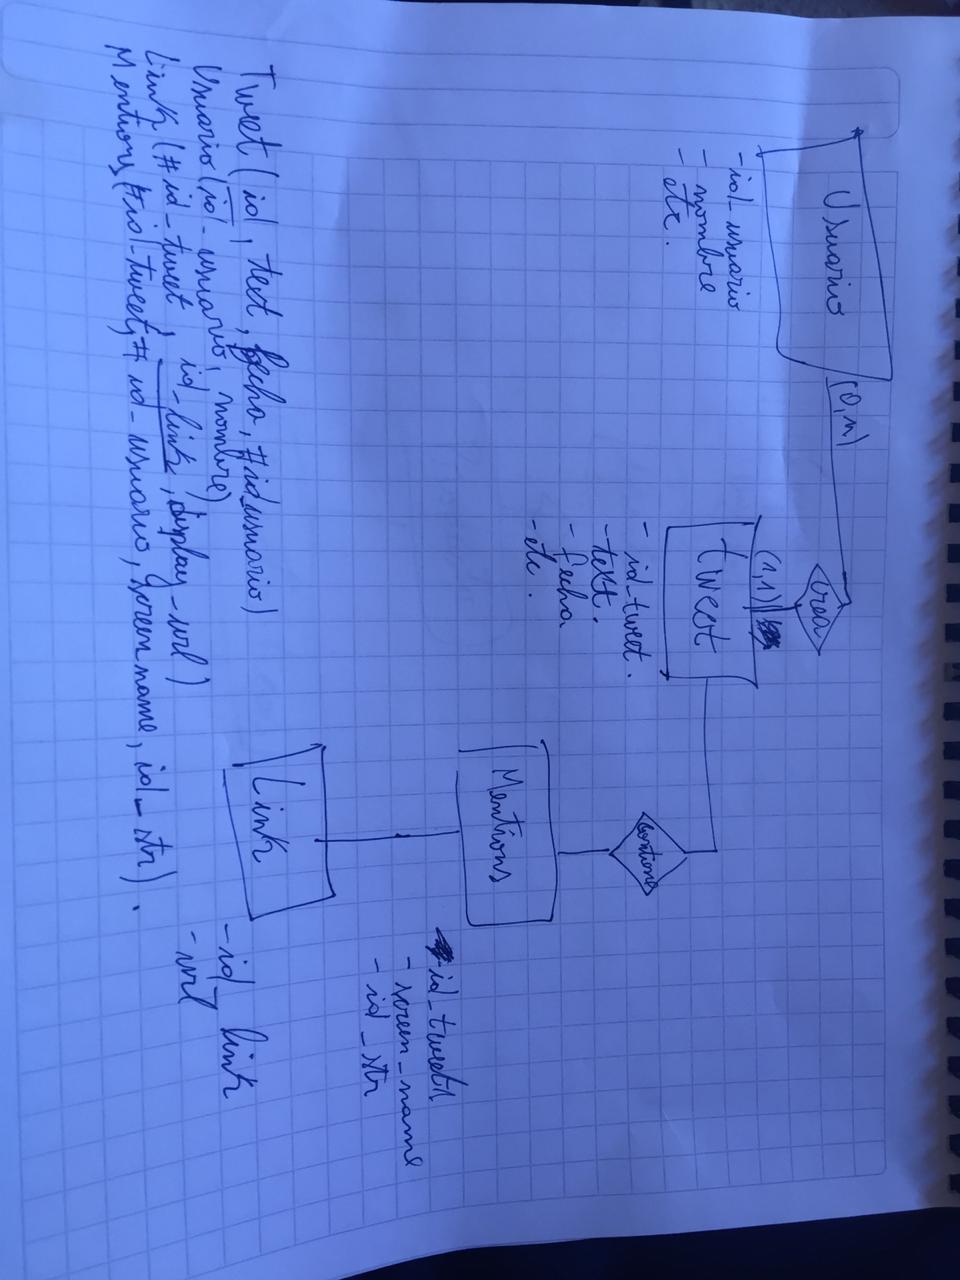 Usuario
(0,n)
- id_usuario
- nombre
- etc.
Crea
(1,1)
tweet
- id_tweet.
- text.
- fecha
- etc.
Contiene
Mentions
- id_tweet
- screen_name
- id_str
Link
- id_link
- url
Tweet (id, text, fecha, #id_usuario)
Usuario (id_usuario, nombre)
Link (#id_tweet, id_link, display_url)
Mentions (#id_tweet, #id_usuario, screenname, id_str).